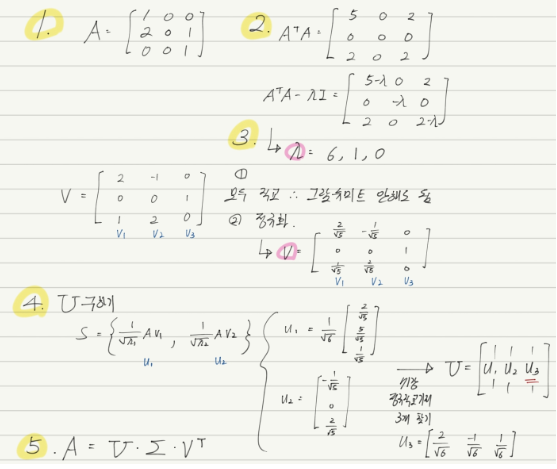 1. A = [1 0 0; 2 0 1; 0 0 1]
2. AᵀA = [5 0 2; 0 0 0; 2 0 2]
AᵀA - λI = [5-λ 0 2; 0 -λ 0; 2 0 2-λ]
3. ↳ λ = 6, 1, 0
V = [2 -1 0; 0 0 1; 1 2 0]
V₁ V₂ V₃
① 모두 직교 ∴ 그람-슈미트 안해도 됨
② 정규화.
↳ V = [2/√5 -1/√5 0; 0 0 1; 1/√5 2/√5 0]
V₁ V₂ V₃
4. U 구하기
S = { 1/√λ₁ AV₁, 1/√λ₂ AV₂ }
U₁ U₂
U₁ = 1/√6 [2/√5; 5/√5; 1/√5]
U₂ = [-1/√5; 0; 2/√5]
→ U = [U₁ U₂ U₃]
정규직교기저
3개 찾기
U₃ = [2/√6 -1/√6 1/√6]
5. A = U · Σ · Vᵀ